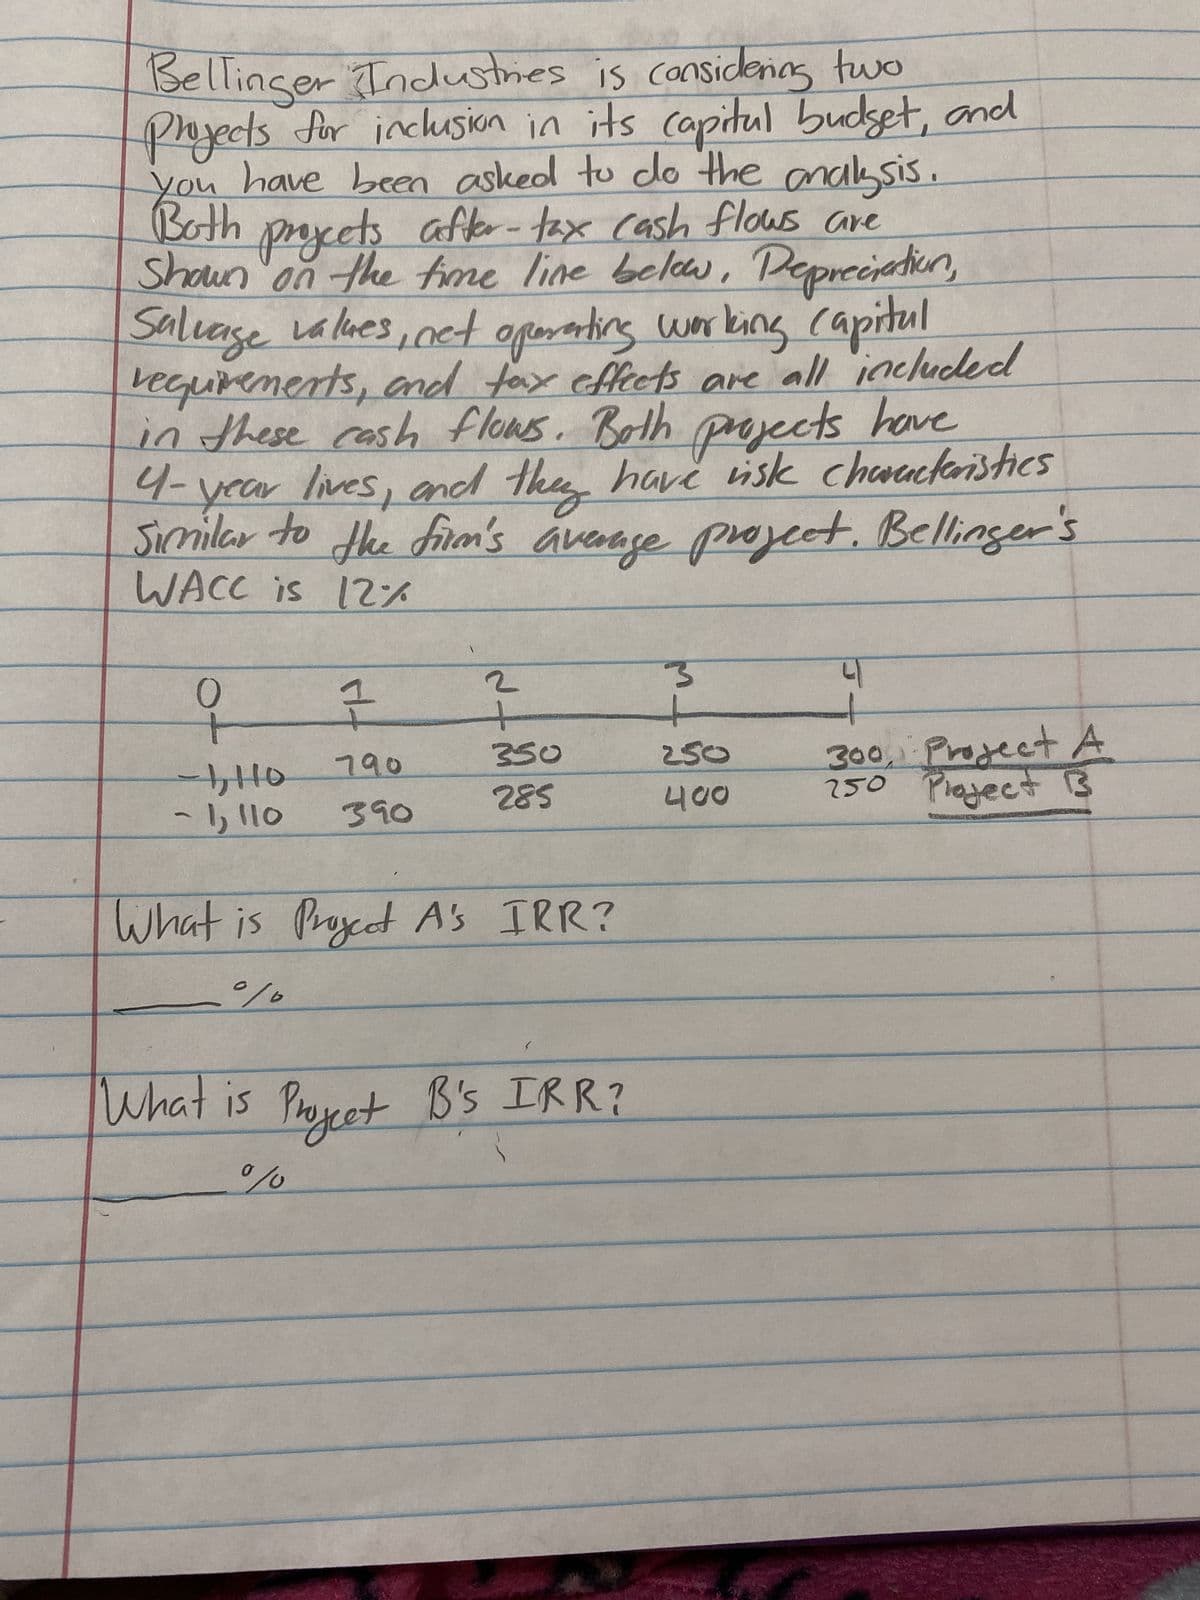 Bellinger Industries is considering two
projects for inclusion in its capital budget, and
you have been asked to do the analysis.
Both projects after-tax cash flows are
shown on the time line below. Depreciation,
Salvage values, net operating working capital
requirements, and tax effects are all included
in these cash flows. Both projects have
4-year lives, and they have risk characteristics
Similar to the firm's average project. Bellinger's
WACC is 12%
0 1 2 3 4
-1,110 790 350 250 300 Project A
-1,110 390 285 400 750 Project B
What is Project A's IRR?
___%
What is Project B's IRR?
___%